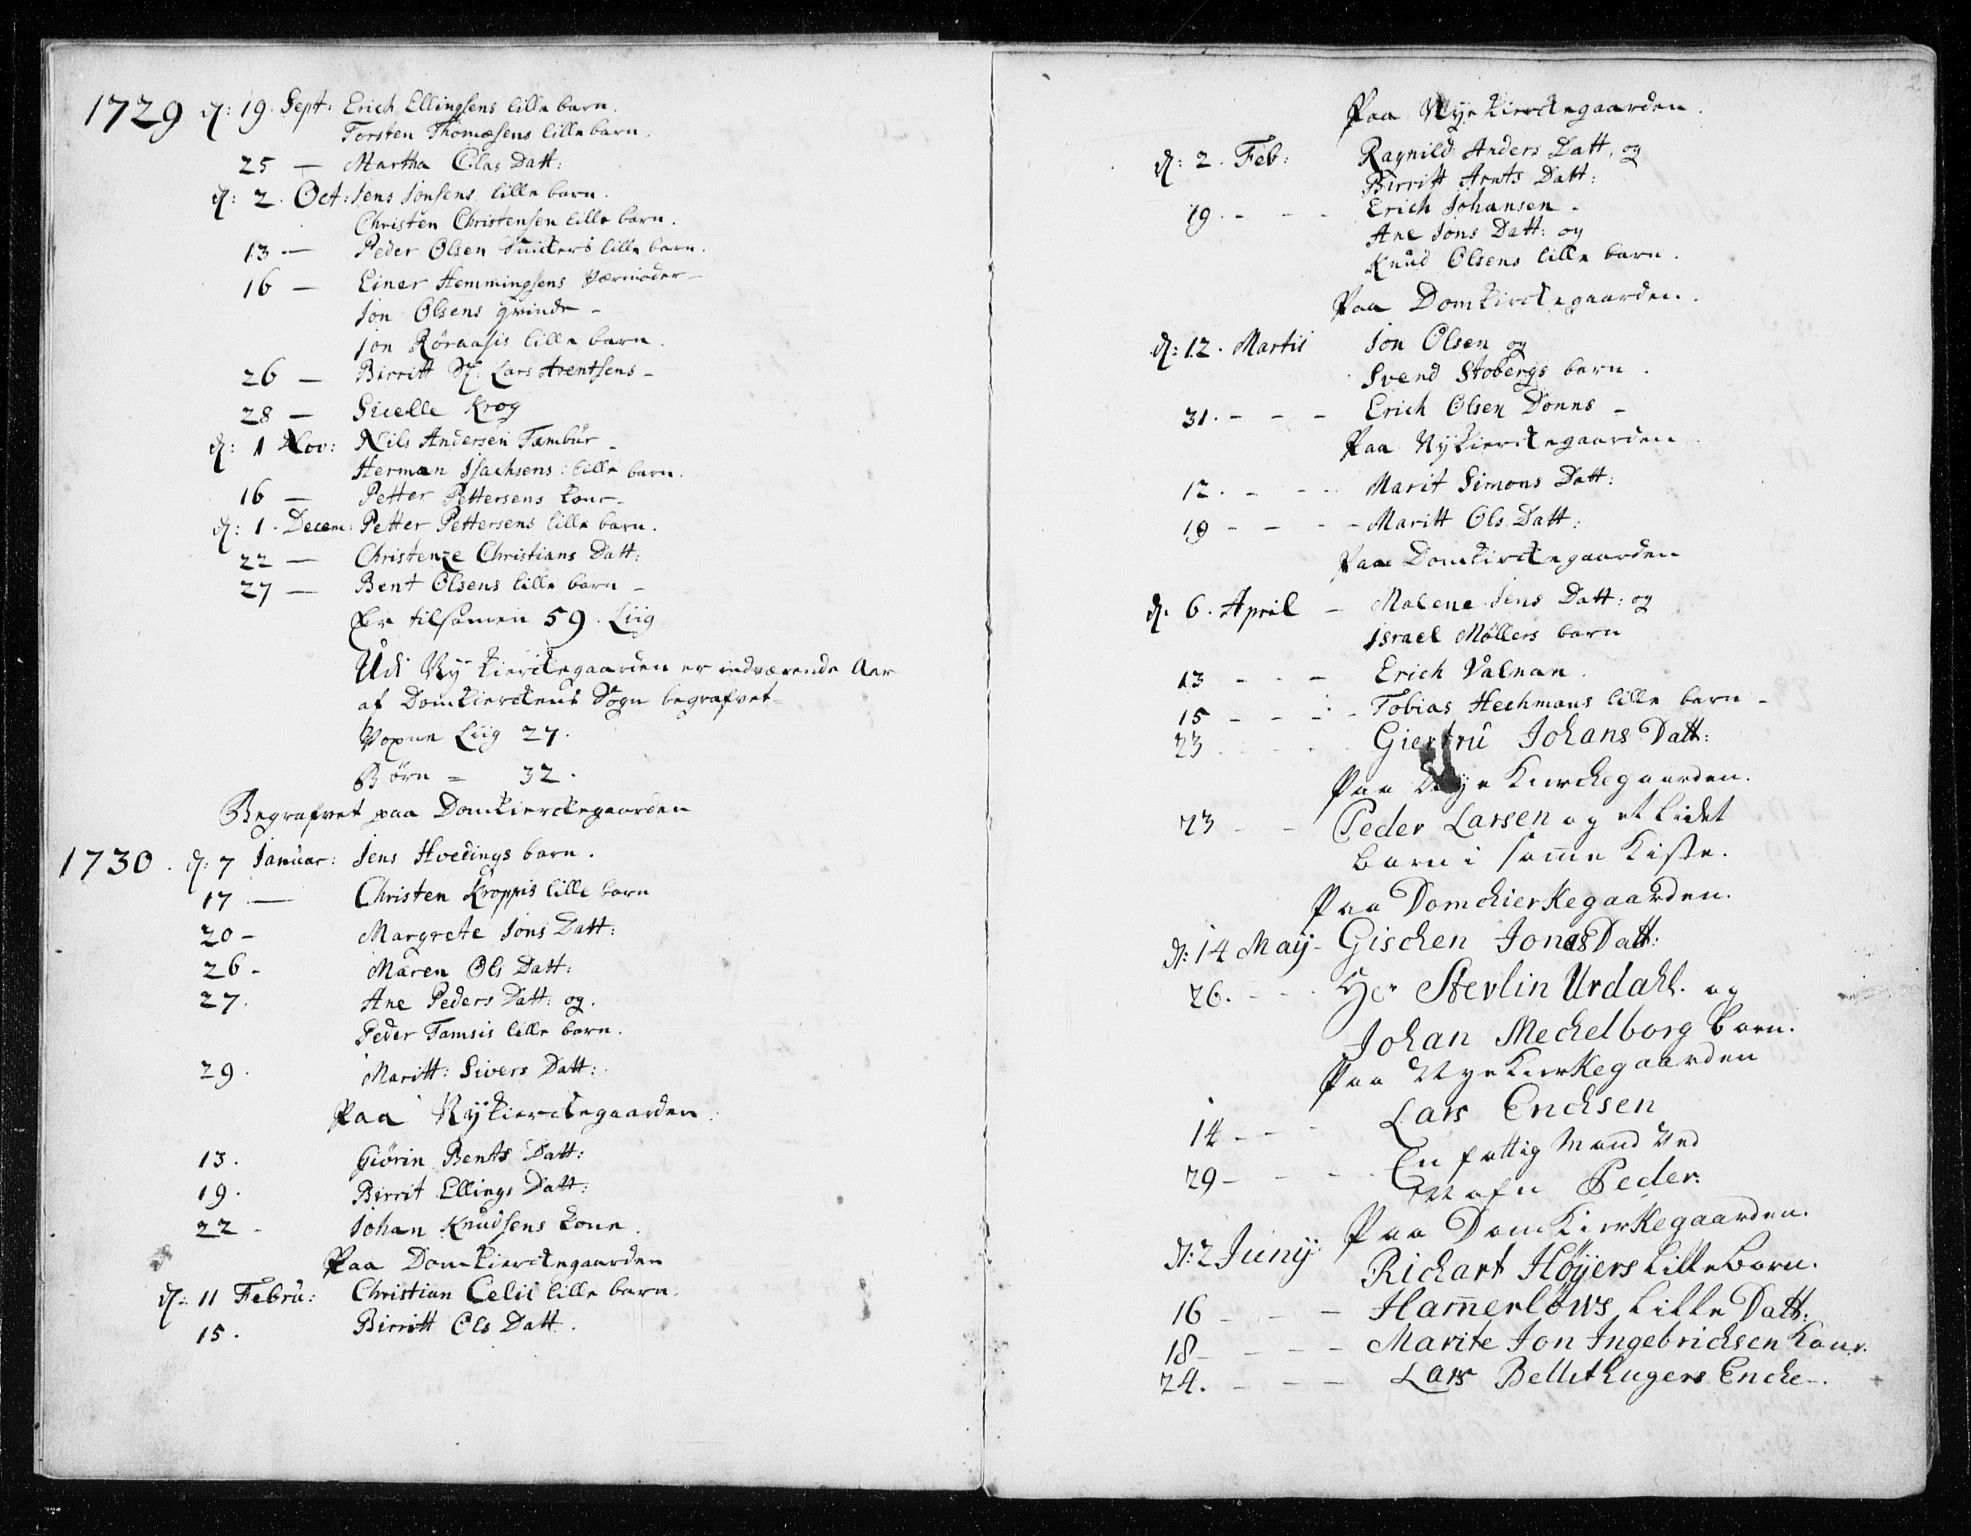 1729 d: 19. Sept: Erich Ellingsens lille barn.
Torsten Thomæsens lille barn.
25 — Martha Olas Datt:
d: 2. Oct: Jens Jonsens lille barn.
Christen Christensen lille barn.
13 — Peder Olsen lille barn.
16 — Einer Hemmingsens Værmoder —
Jon Olsens Qvinde —
Jon Røraasis lille barn.
26 — Birritt Sl. Lars Arentsens —
28 — Sicelle Krog
d: 1 Nov: Nils Andersen Tambur —
Herman Isachsens lille barn.
16 — Petter Pettersens Kone —
d: 1. Decem: Petter Pettersens lille barn.
22 — Christenze Christians Datt:
27 — Bent Olsens lille barn —
Er tilsamen 59. Liig
Udi Ny Kierckegaarden er indværende Aar
af Domkierckens Sogn begrafvet —
Voxne Liig 27.
Børn = 32.
Begrafvet paa Domkierckegaarden
1730. d: 7 Januar: Jens Hvedings barn.
17 — Christen Kroppis lille barn
20 — Margrete Jons Datt:
26 - Maren Ols Datt:
27. Ane Peders Datt: og.
Peder Tamsis lille barn.
29. Maritt: Sivers Datt:
Paa Nykierckegaarden.
13. Giørin Bents Datt:
19. Birrit Ellings Datt:
22 - Johan Knudsens Kone.
Paa Domkierckegaarden
d: 11 Febru: Christian Celii lille barn.
15. Birritt Ols Datt.
Paa Nye Kierckegaarden.
d: 2. Feb: Ragnild Anders Datt, og
Birritt Arnts Datt:
19. - - - Erich Johansen -
Ane Jons Datt: og
Knud Olsens lille barn.
Paa Domkierckegaarden.
d: 12. Martii Jon Olsen og
Svend Stobergs barn.
31. - - - Erich Olsen Donns -
Paa Nykierckegaarden
12. - - - Marit Simons Datt:
19 - - - - Maritt Ols Datt:
Paa Domkierckegaarden
d. 6. April - Malene Jens Datt: og
Israel Møllers barn
13 - - - Erich Valnan.
15 - - - - Tobias Hechmans lille barn -
23 - - - Giertru Johans Datt:
Paa Nye Kierckegaarden.
23 - - Peder Larsen og et lidet
barn i samme Kiste.
Paa Domchierkegaarden.
d: 14 May - Gischen Jonas Datt:
26. - - - Hr Stevlin Urdahl. og
Johan Mechelborg barn.
Paa Nye Kierkegaarden
14 - - - Lars Erichsen
29 - - - - En fattig Mand ved
Nafn Peder.
Paa Domkierkegaarden.
d: 2 Junij: Richart Høyers lille barn.
16 - - - Hamerlows lille Datt:
18 - - - - Marite Jon Ingebrichsen Kone.
24. - - - Lars Bellethugers Encke -.